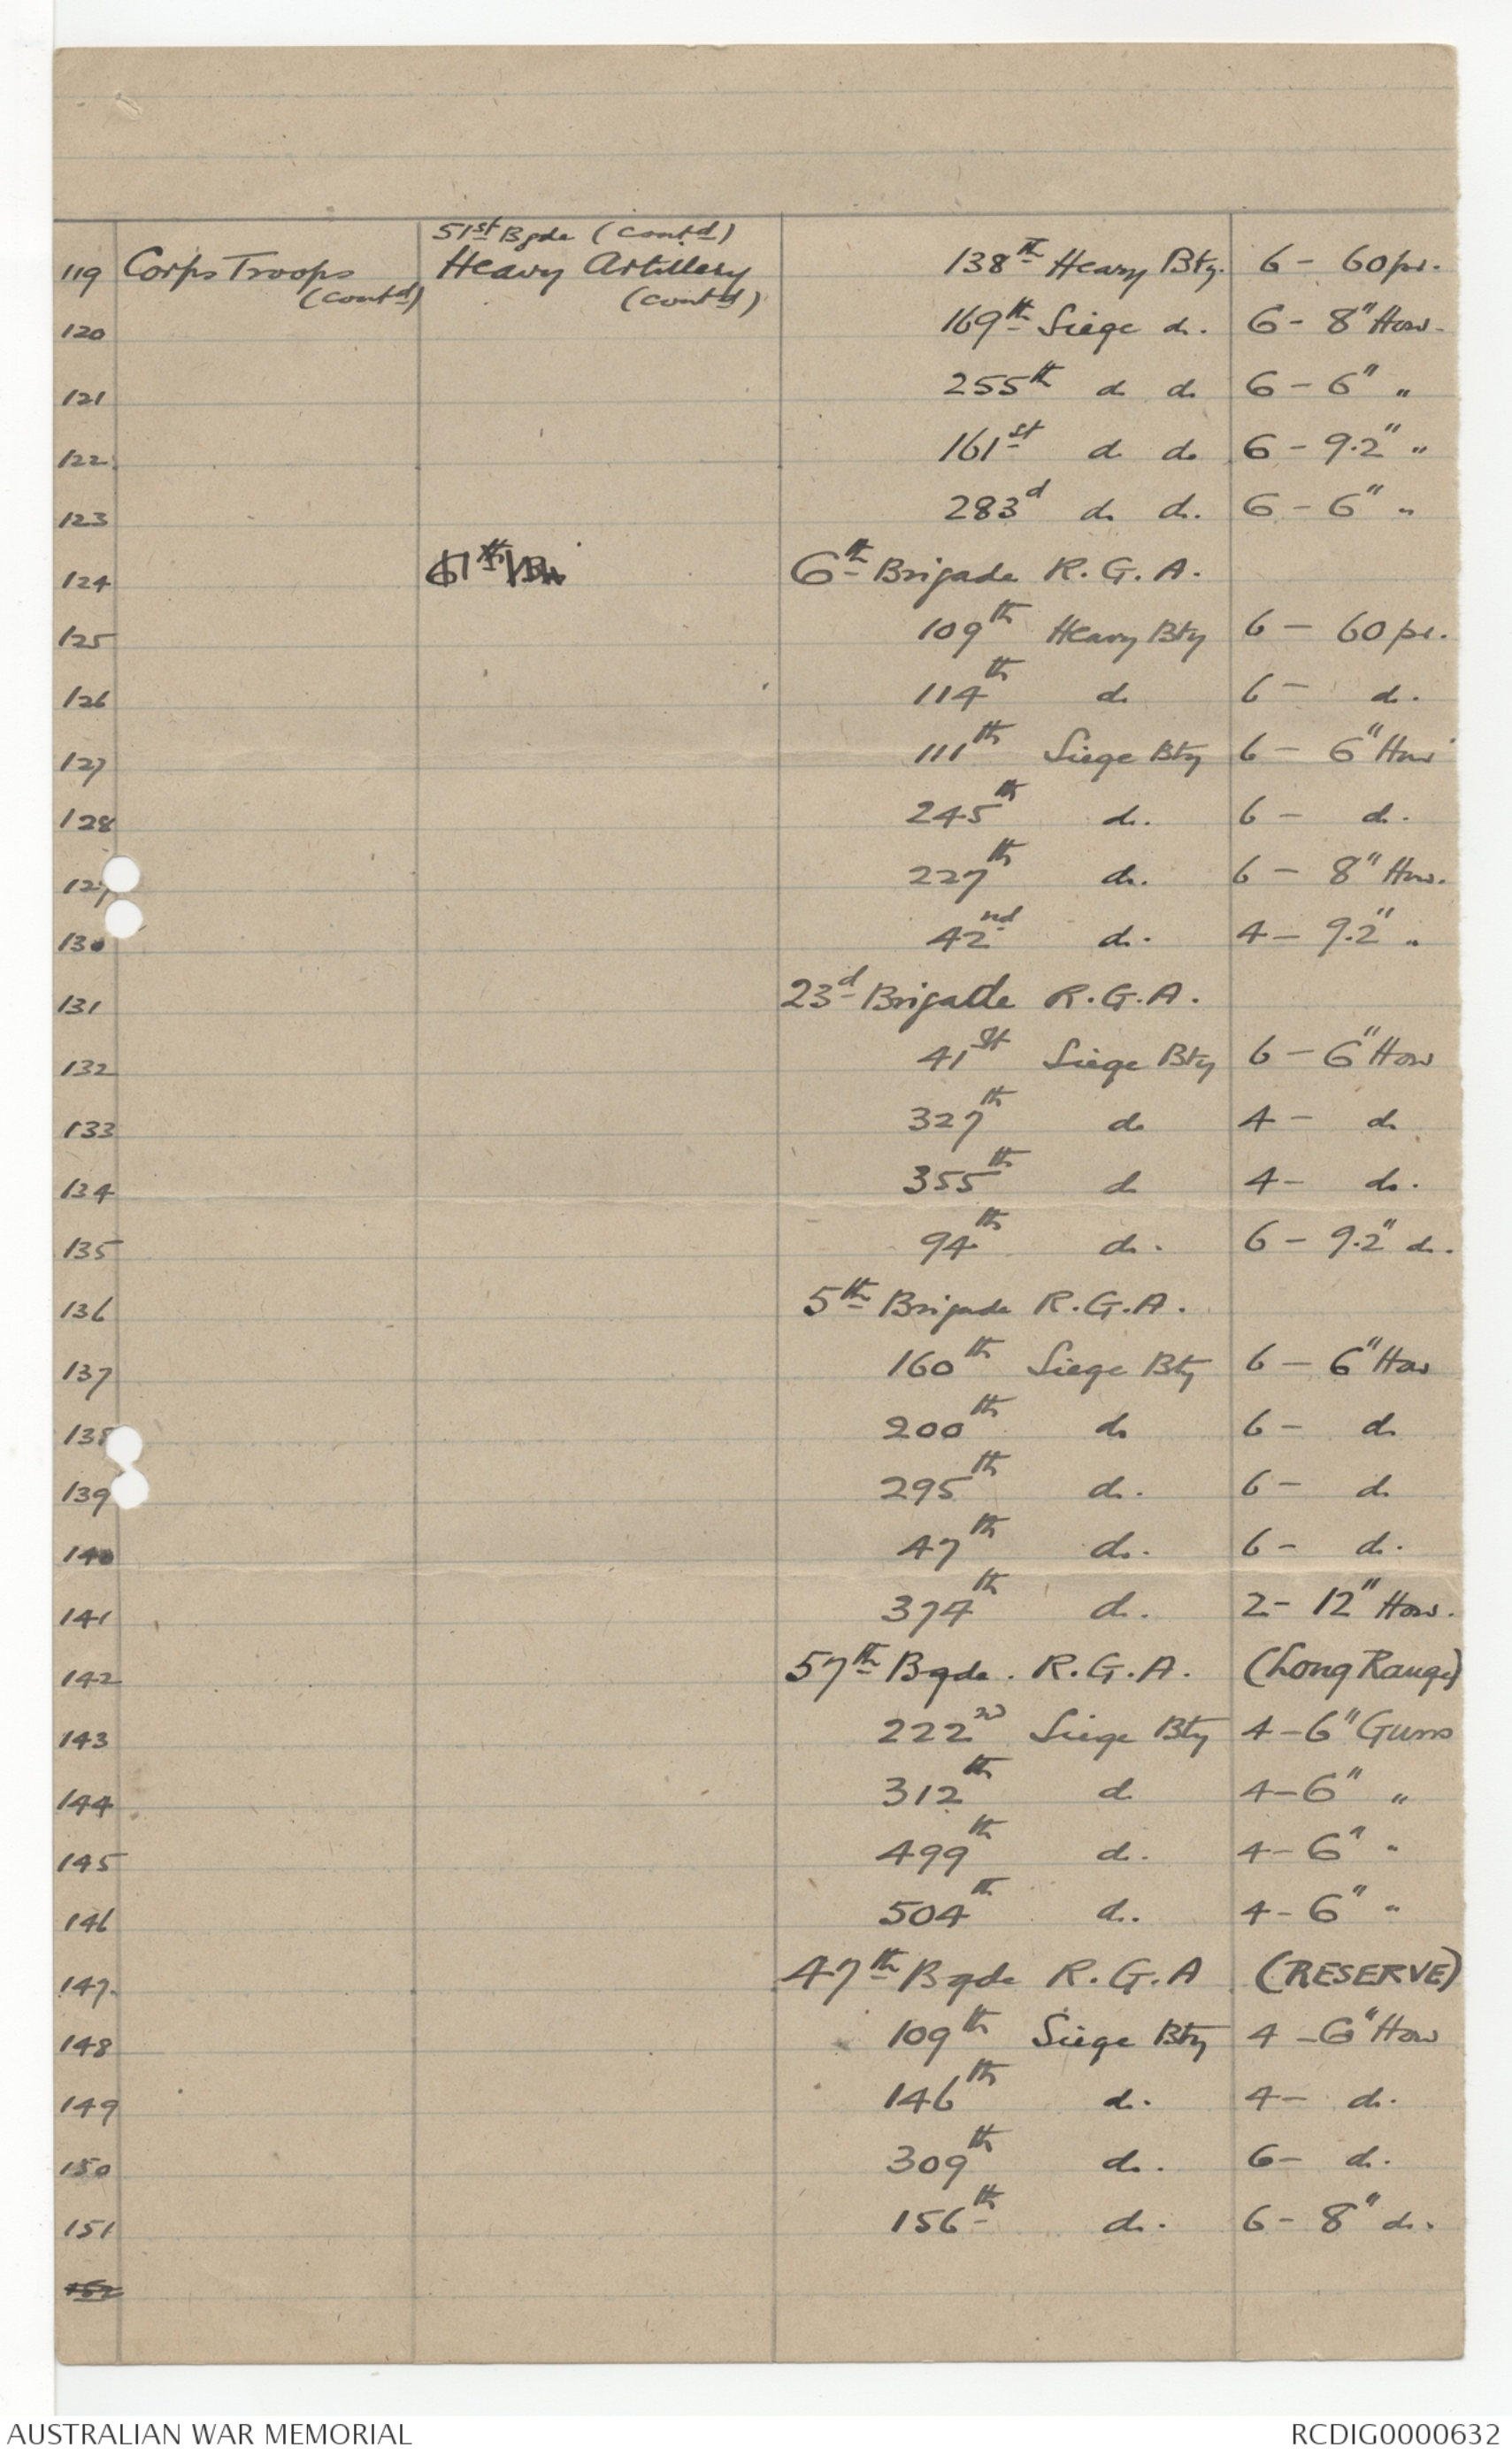 51st Bgde (Contd)
119 Corps Troops Heavy Artillery 138th Heavy Bty. 6 - 60pr.
(contd) (contd)
120 169th Siege do. 6 - 8" How.
121 255th do do 6 - 6" "
122 161st do do 6 - 9.2" "
123 283d do do. 6 - 6" "
124 6th Brigade R.G.A.
125 109th Heavy Bty 6 - 60pr.
126 114th do 6 - do.
127 111th Siege Bty 6 - 6" How
128 245th do. 6 - do.
129 227th do. 6 - 8" How.
130 42nd do. 4 - 9.2" "
131 23d Brigade R.G.A.
132 41st Siege Bty 6 - 6" How
133 327th do 4 - do
134 355th do 4 - do.
135 94th do. 6 - 9.2" do.
136 5th Brigade R.G.A.
137 160th Siege Bty 6 - 6" How
138 200th do 6 - do
139 295th do. 6 - do
140 47th do. 6 - do.
141 374th do. 2 - 12" How.
142 57th Bgde. R.G.A. (Long Range)
143 222nd Siege Bty 4 - 6" Guns
144 312th do 4 - 6" "
145 499th do. 4 - 6" "
146 504th do. 4 - 6" "
147. 47th Bgde R.G.A (RESERVE)
148 109th Siege Bty 4 - 6" How
149 146th do. 4 - do.
150 309th do. 6 - do.
151 156th do. 6 - 8" do.
152
AUSTRALIAN WAR MEMORIAL RCDIG0000632